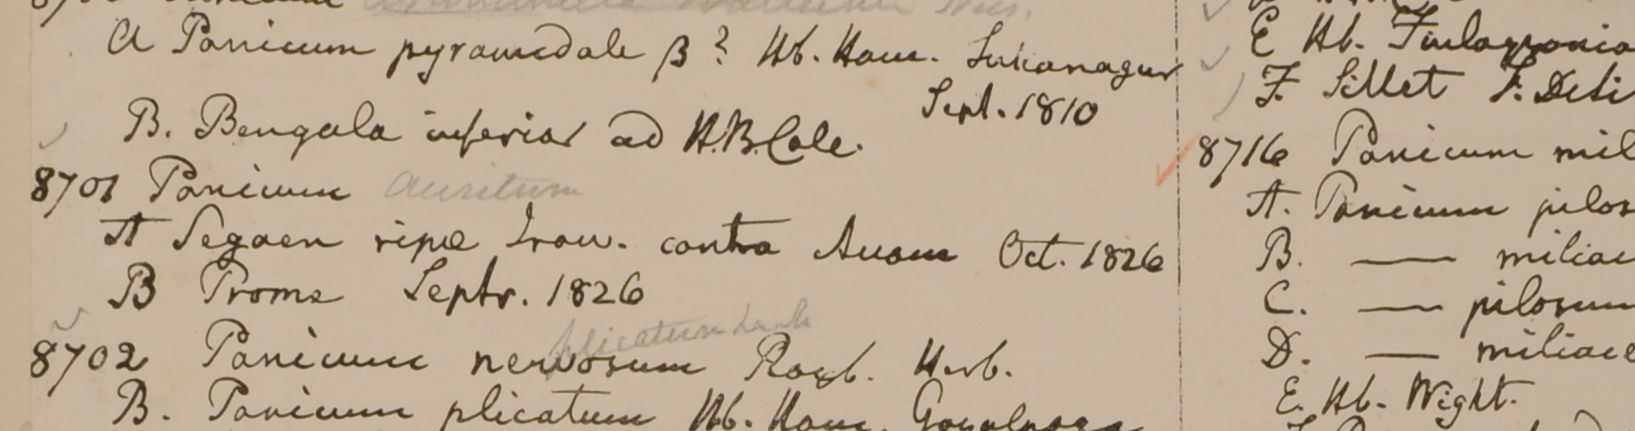 A Panicum pyramidale β? Hb. Ham. Sukanagur
Sept. 1810
B. Bengala inferior ad H.B. Calc.
8701 Panicum auritum
A Segaen ripae Iraw. contra Avam Oct. 1826
B Prome Septr. 1826
plicatum Lamk
8702 Panicum nervosum Roxb. Herb.
B. Panicum plicatum Hb. Ham. Goyalpara
E Hb. Finlaysonia
F. Sillet F. DeSi
8716 Panicum mil
A. Panicum pilos
B. —— miliac
C. —— pilosum
D. —— miliace
E. Hb. Wight.